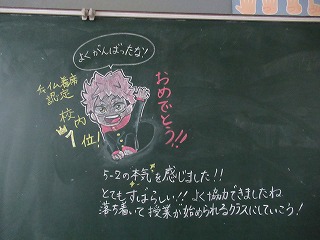 よくがんばったな!
チャイム着席
認定
校内
1位!
おめでとう!!
5-2の本気を感じました!!
とてもすばらしい!! よく協力できましたね
落ち着いて授業が始められるクラスにしていこう!